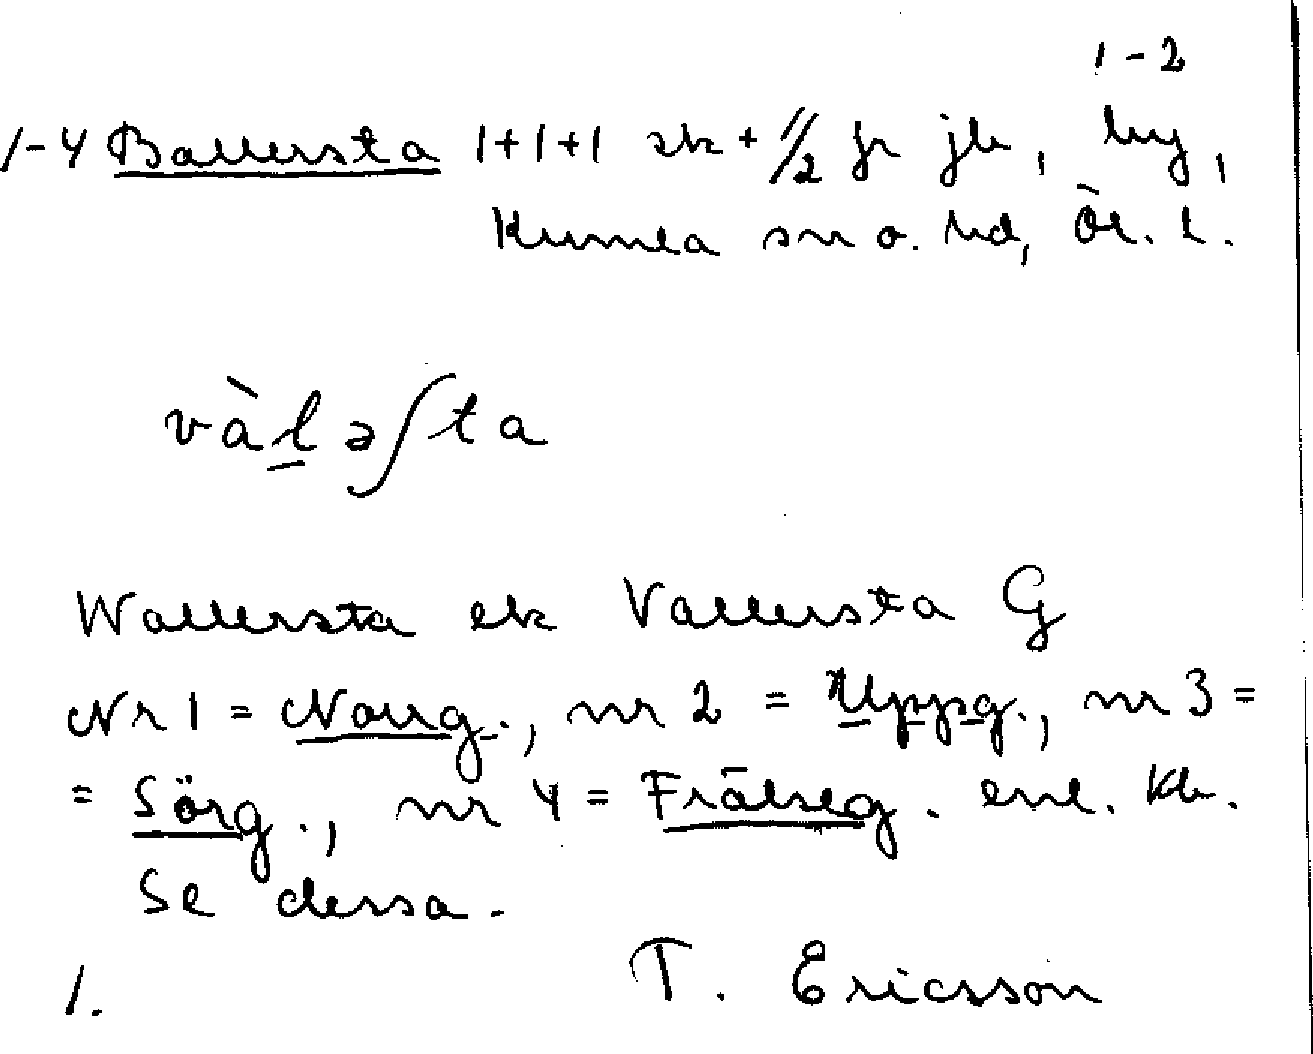 1-2
1-4 Ballersta 1+1+1 sk + 1/2 fr jb, by,
Kumla sn o. hd, Ör. l.
vàləʃta
Wallersta ek Vallersta G
Nr 1 = Norrg., nr 2 = Uppg., nr 3 =
= Sörg., nr 4 = Frälseg. enl. kb.
Se dessa.
1. T. Ericsson